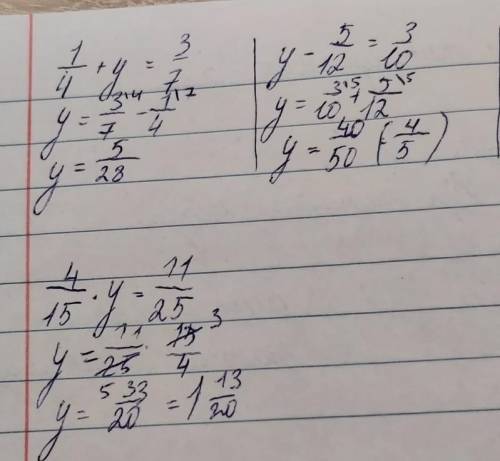 1/4 + y = 3/7
y = 3\4/7 - 1\7/4
y = 5/28
y - 5/12 = 3/10
y = 3\5/10 + 5\5/12
y = 40/50 (= 4/5)
4/15 · y = 11/25
y = 11/25 5 · 15 3/4
y = 33/20 = 1 13/20